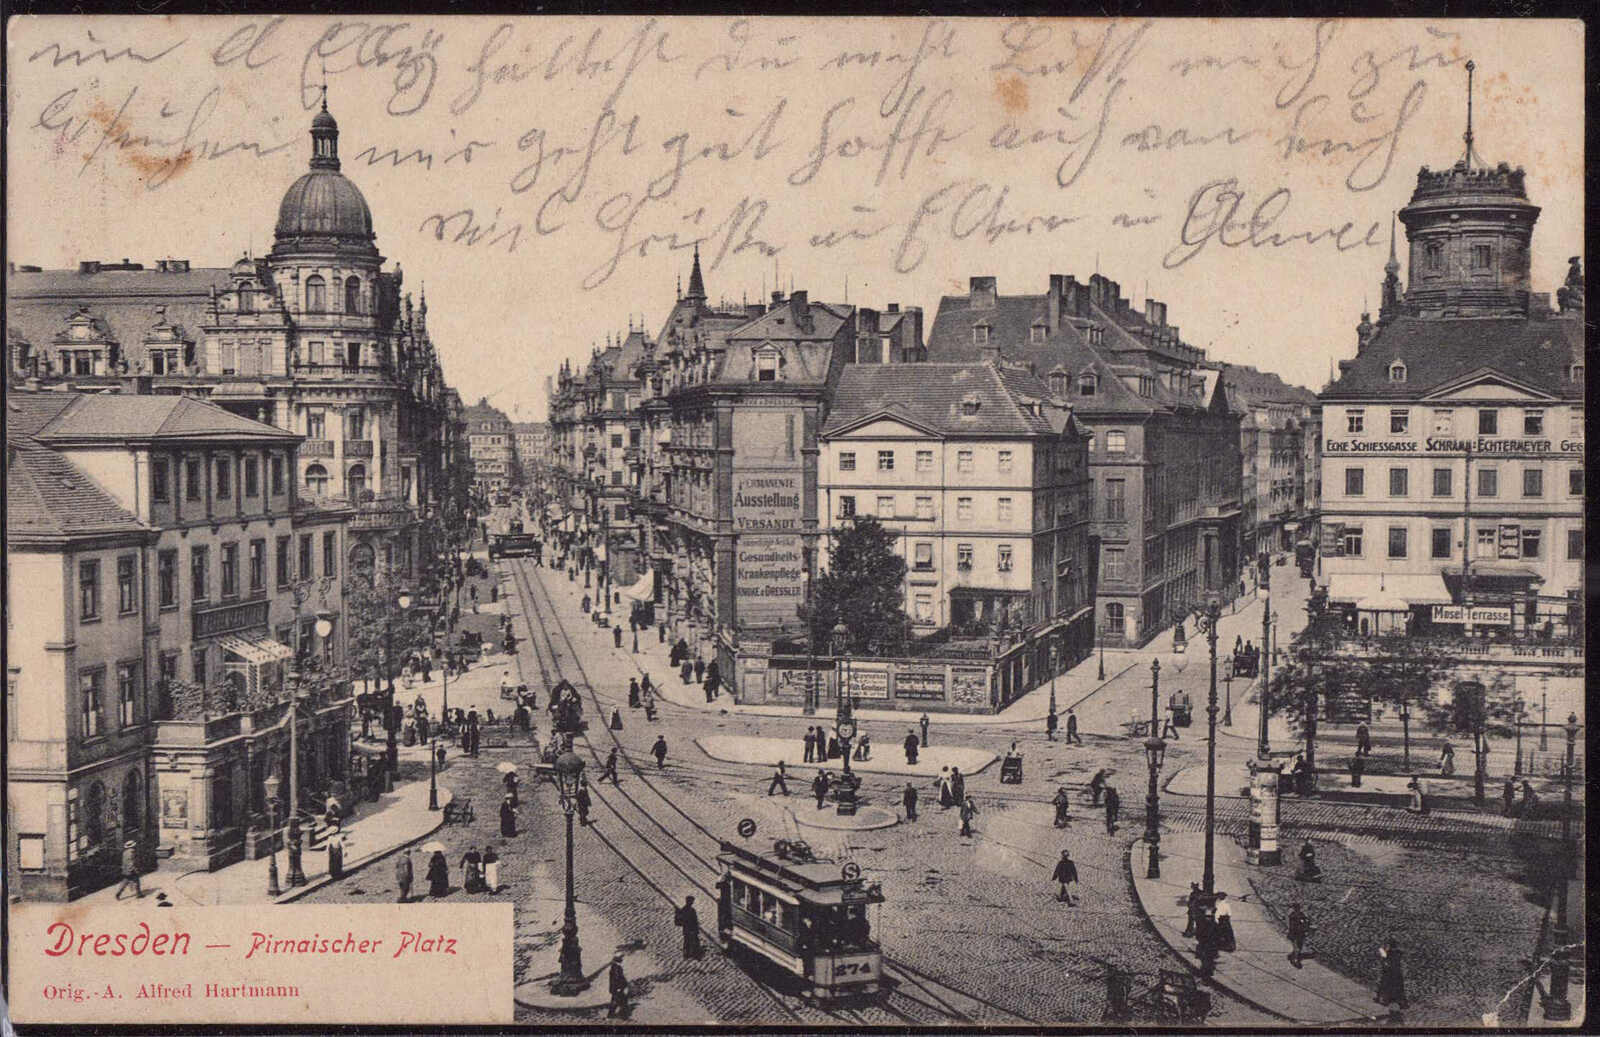 hattest Du nicht Lust mich zu
besuchen mir geht gut hoffe auch von Euch
Viel Grüße an Eltern u
ECKE SCHIESSGASSE SCHRAMM & ECHTERMEYER
PERMANENTE
Ausstellung
und
VERSANDT
Gesundheits-
Krankenpflege
KNOKE & DRESSLER
Mosel-Terrasse
2
S
274
Dresden — Pirnaischer Platz
Orig.-A. Alfred Hartmann